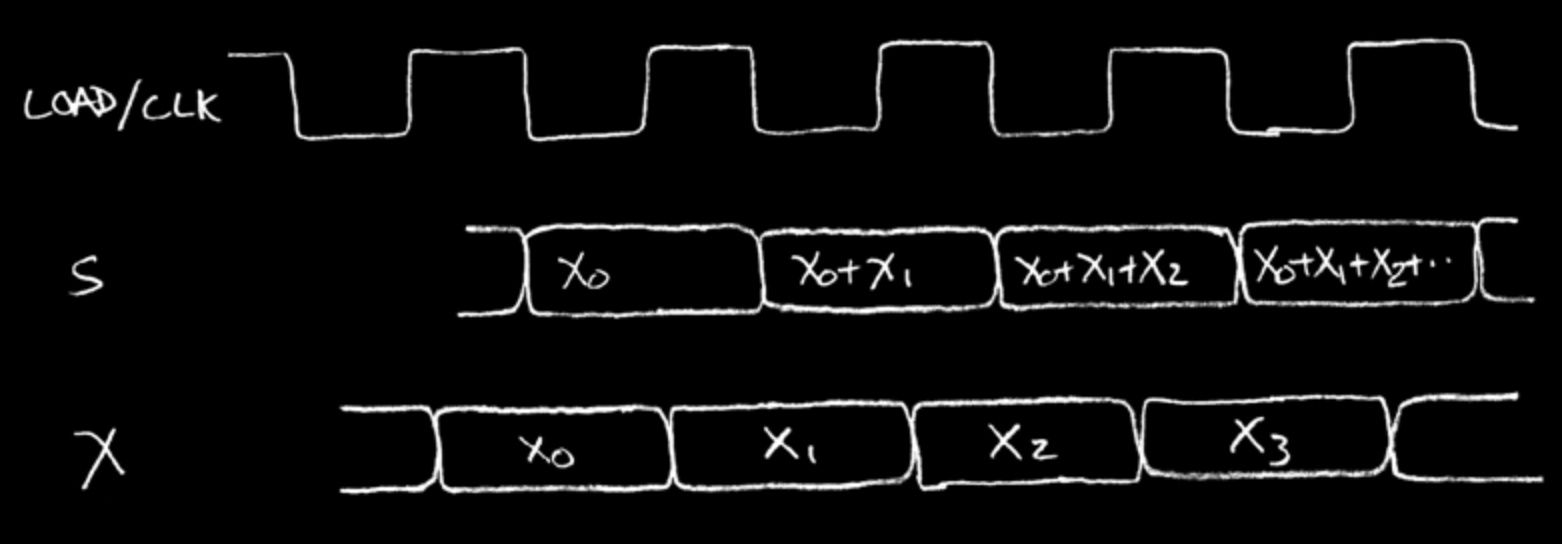 LOAD/CLK
S X₀ X₀+X₁ X₀+X₁+X₂ X₀+X₁+X₂+··
X X₀ X₁ X₂ X₃